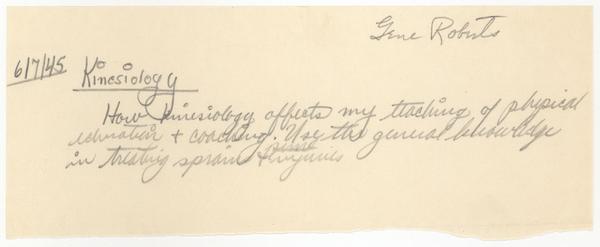 Gene Roberts
6/7/45 Kinesiology
How kinesiology affects my teaching of physical
education + coaching. Use the general knowledge
in treating sprains + some injuries